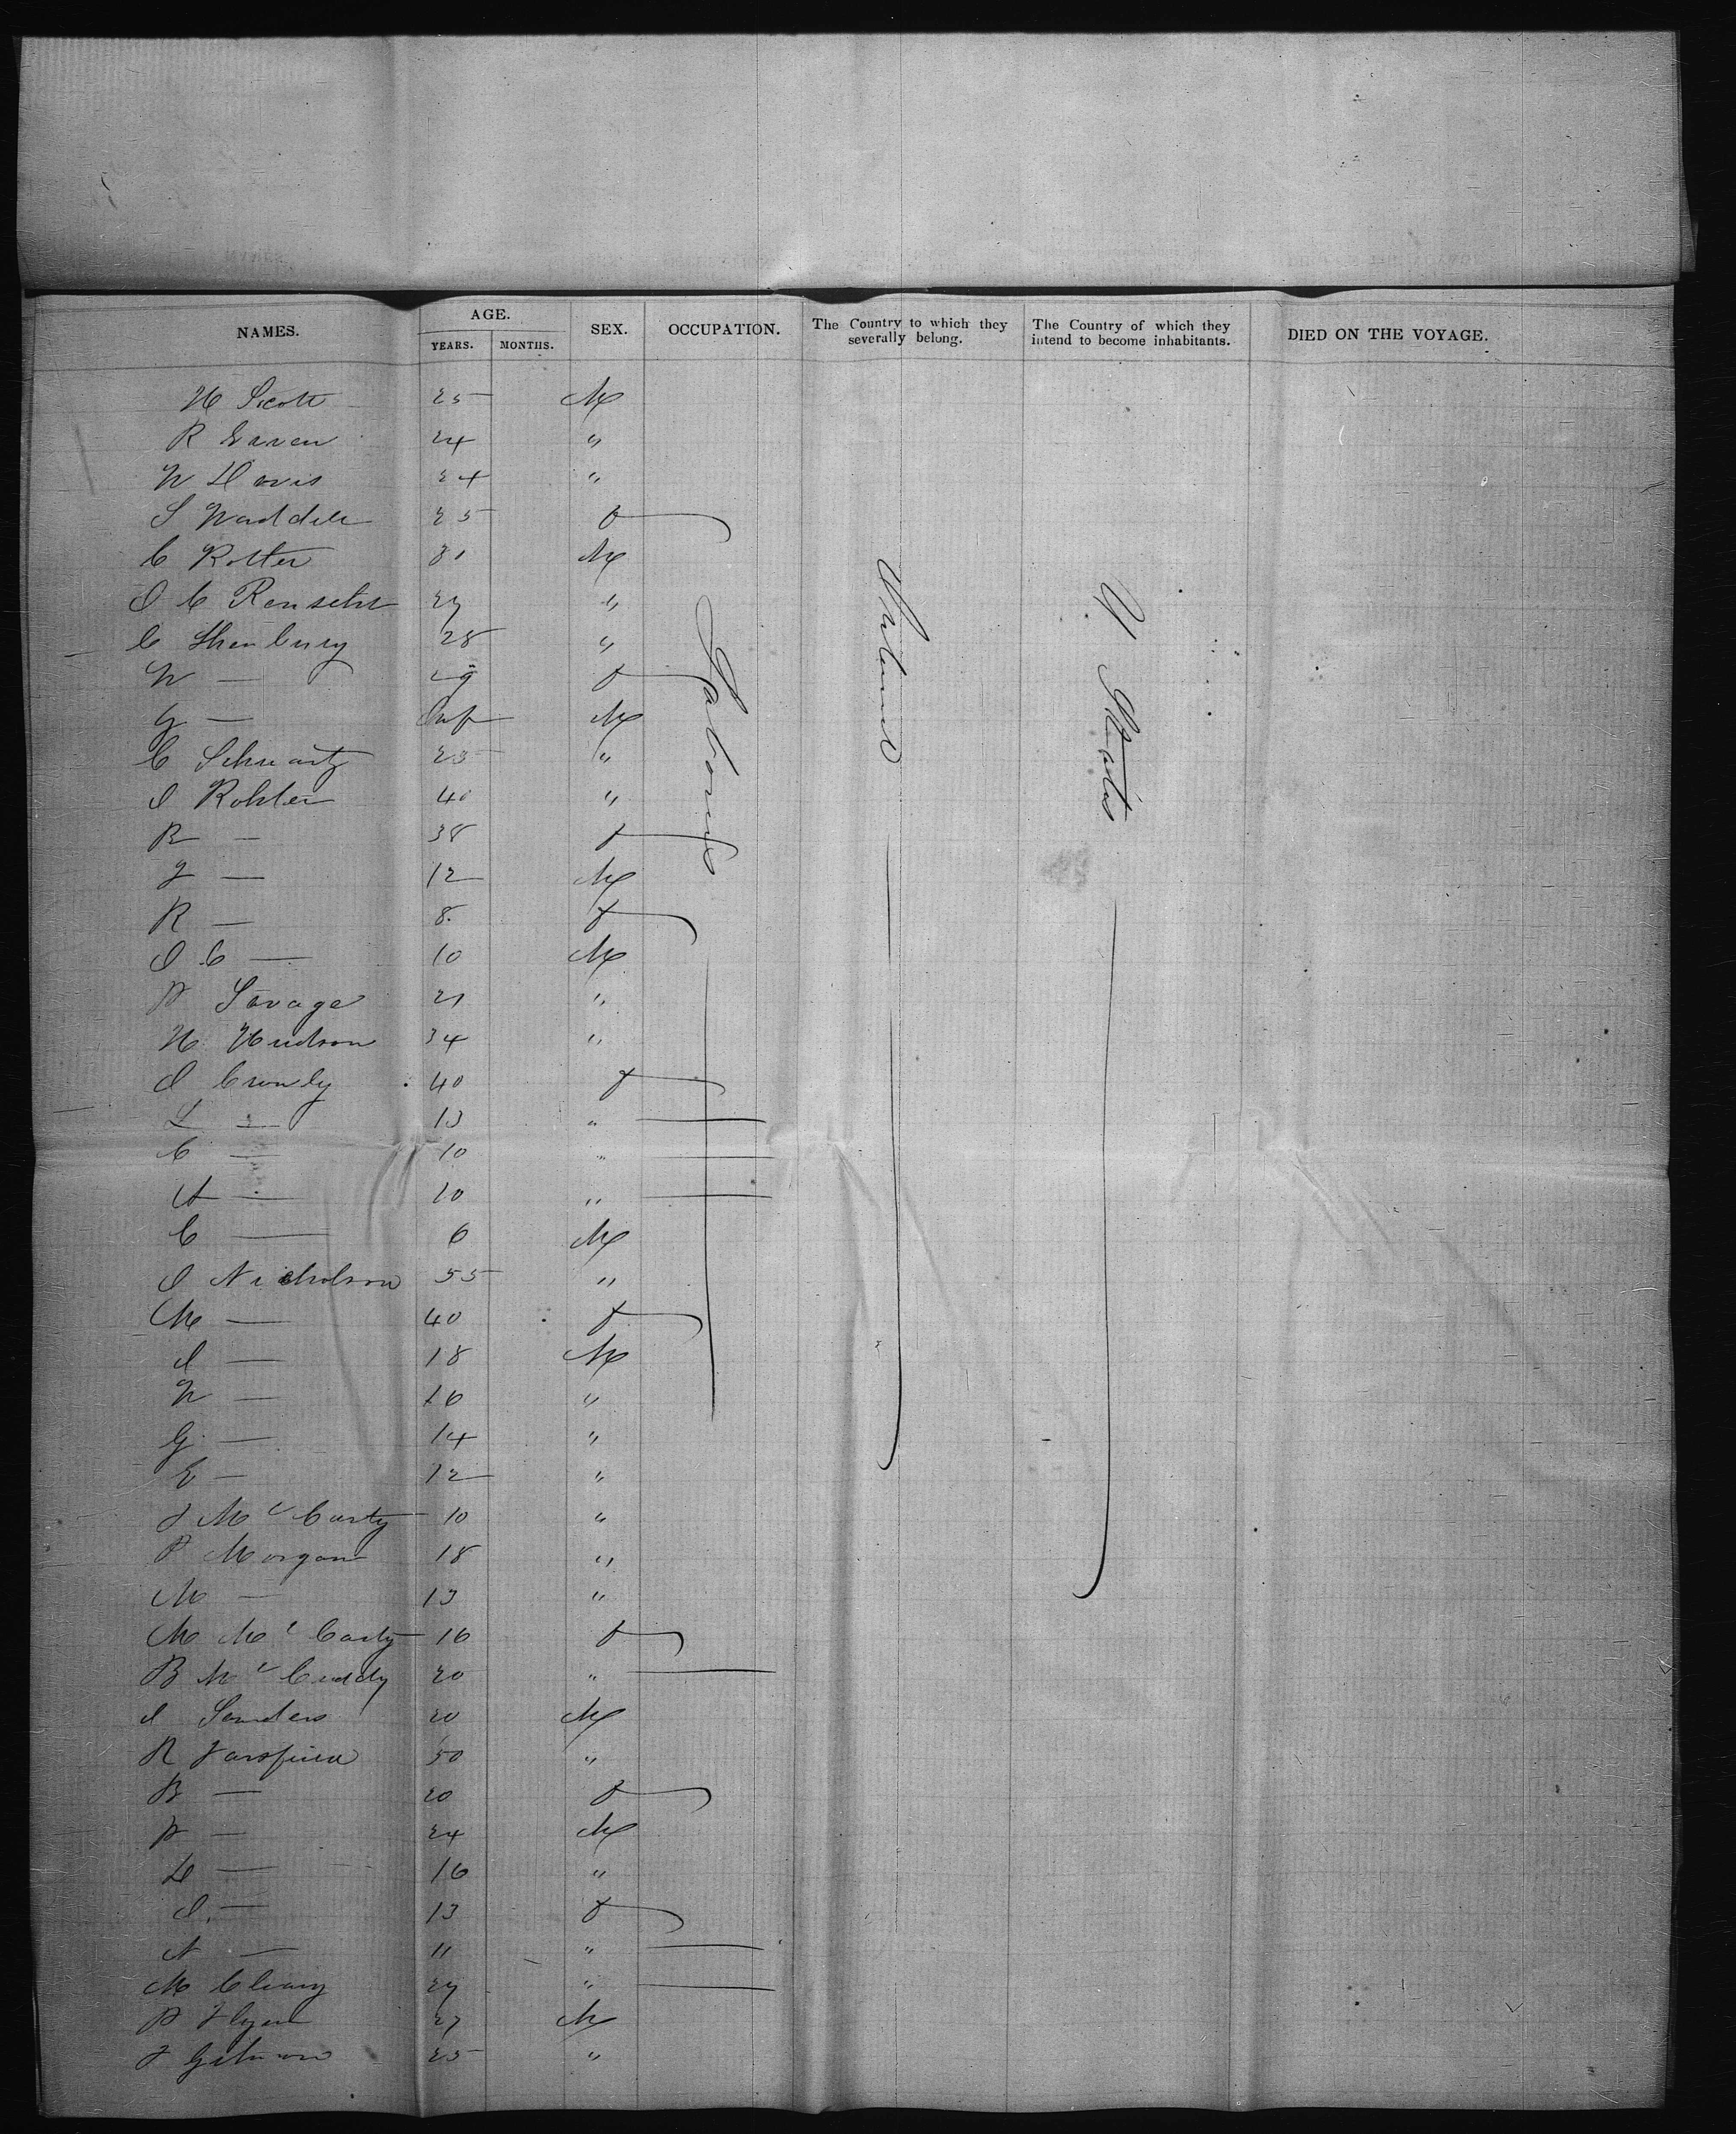 NAMES. AGE. YEARS. MONTHS. SEX. OCCUPATION. The Country to which they severally belong. The Country of which they intend to become inhabitants. DIED ON THE VOYAGE.
H Scott 25 M
R 24 "
W Davis 24 "
S Waddell 25 f
C Rotter 31 M
J C 27 "
C 28 "
W — 29 f
G — Inf M
C Schwartz 25 "
J Kohler 40 "
R — 38 f
J — 12 M
R — 8 f
J C — 10 M
P Savage 21 "
H Hudson 34 "
J Crowly 40 f
L — 13 "
C — 10 "
A — 10 "
C — 6 M
J Nicholson 55 "
M — 40 f
J — 18 M
W — 16 "
G — 14 "
E — 12 "
J McCarty 10 "
P Morgan 18 "
M — 13 "
M McCarty 16 f
B McCuddy 20 "
J Sanders 20 M
R 50 "
B — 20 f
P — 24 M
D — 16 "
J — 13 f
N — 11 "
M Cleary 27 "
P Flynn 27 M
J Gilmore 25 "
Laborers
Ireland
U States